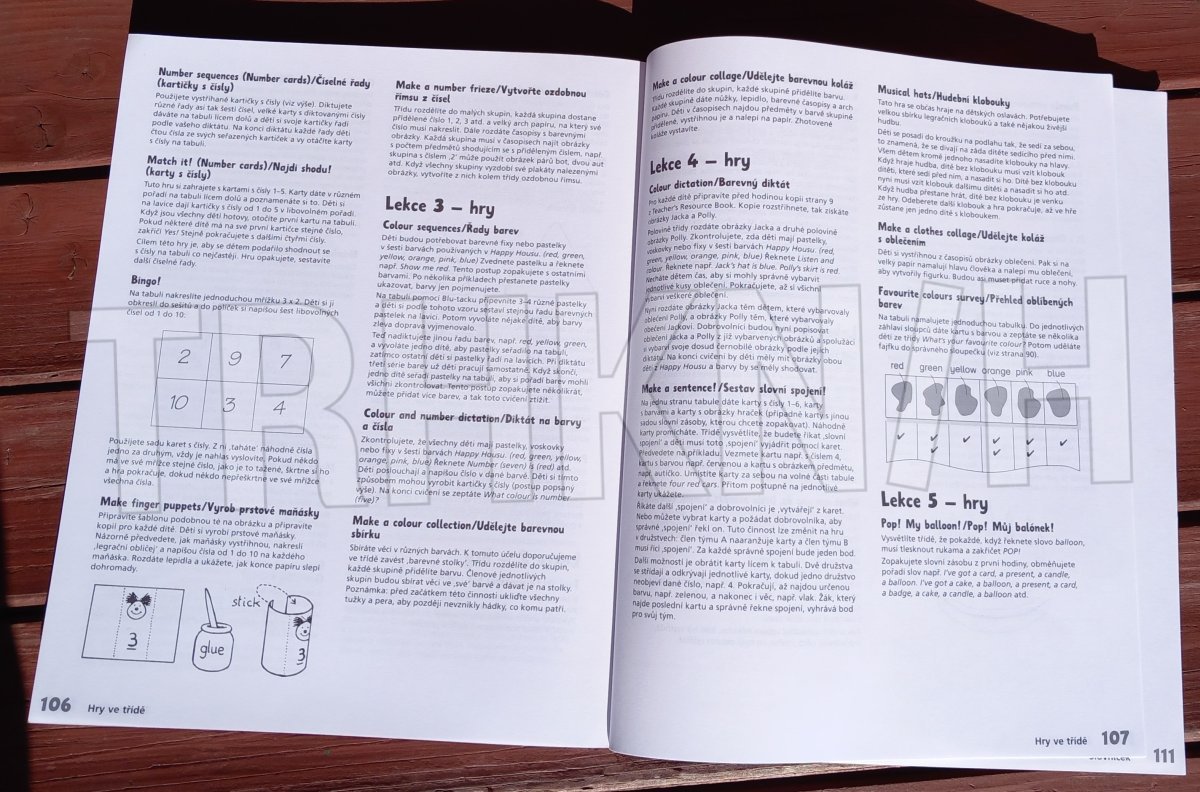 Number sequences (Number cards)/Číselné řady
(kartičky s čísly)
Použijete vystříhané kartičky s čísly (viz výše). Diktujete
různé řady asi tak šesti čísel, velké karty s diktovanými čísly
dáváte na tabuli lícem dolů a děti si svoje kartičky řadí
podle vašeho diktátu. Na konci diktátu každé řady děti
čtou čísla ze svých seřazených kartiček a vy otáčíte karty
s čísly na tabuli.
Match it! (Number cards)/Najdi shodu!
(karty s čísly)
Tuto hru si zahrajete s kartami s čísly 1–5. Karty dáte v různém
pořadí na tabuli lícem dolů a poznamenáte si to. Děti si
na lavice dají kartičky s čísly od 1 do 5 v libovolném pořadí.
Když jsou všechny děti hotovy, otočíte první kartu na tabuli.
Pokud některé dítě má na své první kartičce stejné číslo,
zakřičí Yes! Stejně pokračujete s dalšími čtyřmi čísly.
Cílem této hry je, aby se dětem podařilo shodnout se
s čísly na tabuli co nejčastěji. Hru opakujete, sestavíte
další číselné řady.
Bingo!
Na tabuli nakreslíte jednoduchou mřížku 3 x 2. Děti si ji
obkreslí do sešitů a do políček si napíšou šest libovolných
čísel od 1 do 10:
2 9 7
10 3 4
Použijete sadu karet s čísly. Z ní ‚taháte' náhodné čísla
jedno za druhým, vždy je nahlas vyslovíte. Pokud někdo
má ve své mřížce stejné číslo, jako je to tažené, škrtne si ho
a hra pokračuje, dokud někdo nepřeškrtne ve své mřížce
všechna čísla.
Make finger puppets/Vyrob prstové maňásky
Připravíte šablonu podobnou té na obrázku a připravíte
kopii pro každé dítě. Děti si vyrobí prstové maňásky.
Názorně předvedete, jak maňásky vystřihnou, nakreslí
‚legrační obličej' a napíšou čísla od 1 do 10 na každého
maňáska. Rozdáte lepidla a ukážete, jak konce papíru slepí
dohromady.
3
glue
stick
3
106 Hry ve třídě
Make a number frieze/Vytvořte ozdobnou
římsu z čísel
Třídu rozdělíte do malých skupin, každá skupina dostane
přidělené číslo 1, 2, 3 atd. a velký arch papíru, na který své
číslo musí nakreslit. Dále rozdáte časopisy s barevnými
obrázky. Každá skupina musí v časopisech najít obrázky
s počtem předmětů shodujícím se s přiděleným číslem, např.
skupina s číslem ‚2' může použít obrázek párů bot, dvou aut
atd. Když všechny skupiny vyzdobí své plakáty nalezenými
obrázky, vytvoříte z nich kolem třídy ozdobnou římsu.
Lekce 3 – hry
Colour sequences/Řady barev
Děti budou potřebovat barevné fixy nebo pastelky
v šesti barvách používaných v Happy Housu. (red, green,
yellow, orange, pink, blue) Zvednete pastelku a řeknete
např. Show me red. Tento postup zopakujete s ostatními
barvami. Po několika příkladech přestanete pastelky
ukazovat, barvy jen pojmenujete.
Na tabuli pomocí Blu-tacku připevníte 3–4 různé pastelky
a děti si podle tohoto vzoru sestaví stejnou řadu barevných
pastelek na lavici. Potom vyvoláte nějaké dítě, aby barvy
zleva doprava vyjmenovalo.
Teď nadiktujete jinou řadu barev, např. red, yellow, green,
a vyvoláte jedno dítě, aby pastelky seřadilo na tabuli,
zatímco ostatní děti si pastelky řadí na lavicích. Při diktátu
třetí série barev už děti pracují samostatně. Když skončí,
jedno dítě seřadí pastelky na tabuli, aby si pořadí barev mohli
všichni zkontrolovat. Tento postup zopakujete několikrát,
můžete přidat více barev, a tak toto cvičení ztížit.
Colour and number dictation/Diktát na barvy
a čísla
Zkontrolujete, že všechny děti mají pastelky, voskovky
nebo fixy v šesti barvách Happy Housu. (red, green, yellow,
orange, pink, blue) Řeknete Number (seven) is (red) atd.
Děti poslouchají a napíšou číslo v dané barvě. Děti si tímto
způsobem mohou vyrobit kartičky s čísly (postup popsaný
výše). Na konci cvičení se zeptáte What colour is number
(five)?
Make a colour collection/Udělejte barevnou
sbírku
Sbíráte věci v různých barvách. K tomuto účelu doporučujeme
ve třídě zavést ‚barevné stolky'. Třídu rozdělíte do skupin,
každé skupině přidělíte barvu. Členové jednotlivých
skupin budou sbírat věci ve ‚své' barvě a dávat je na stolky.
Poznámka: před začátkem této činnosti uklidíte všechny
tužky a pera, aby později nevznikly hádky, co komu patří.
Make a colour collage/Udělejte barevnou koláž
Třídu rozdělíte do skupin, každé skupině přidělíte barvu.
Každé skupině dáte nůžky, lepidlo, barevné časopisy a arch
papíru. Děti v časopisech najdou předměty v barvě skupině
přidělené, vystřihnou je a nalepí na papír. Zhotovené
koláže vystavíte.
Lekce 4 – hry
Colour dictation/Barevný diktát
Pro každé dítě připravíte před hodinou kopii strany 9
z Teacher's Resource Book. Kopie rozstřihnete, tak získáte
obrázky Jacka a Polly.
Polovině třídy rozdáte obrázky Jacka a druhé polovině
obrázky Polly. Zkontrolujete, zda děti mají pastelky,
voskovky nebo fixy v šesti barvách Happy Housu. (red,
green, yellow, orange, pink, blue) Řeknete Listen and
colour. Řeknete např. Jack's hat is blue. Polly's skirt is red.
Necháte dětem čas, aby si mohly správně vybarvit
jednotlivé kusy oblečení. Pokračujete, až si všichni
vybarví veškeré oblečení.
Nyní rozdáte obrázky Jacka těm dětem, které vybarvovaly
oblečení Polly, a obrázky Polly těm, které vybarvovaly
oblečení Jackovi. Dobrovolníci budou nyní popisovat
oblečení Jacka a Polly z již vybarvených obrázků a spolužáci
si vybarví svoje dosud černobílé obrázky podle jejich
diktátu. Na konci cvičení by děti měly mít obrázky obou
dětí z Happy Housu a barvy by se měly shodovat.
Make a sentence!/Sestav slovní spojení!
Na jednu stranu tabule dáte karty s čísly 1–6, karty
s barvami a karty s obrázky hraček (případně karty s jinou
sadou slovní zásoby, kterou chcete zopakovat). Náhodně
karty promícháte. Třídě vysvětlíte, že budete říkat ‚slovní
spojení' a děti musí toto ‚spojení' vyjádřit pomocí karet.
Předvedete na příkladu. Vezmete kartu např. s číslem 4,
kartu s barvou např. červenou a kartu s obrázkem předmětu,
např. autíčko. Umístíte karty za sebou na volné části tabule
a řeknete four red cars. Přitom postupně na jednotlivé
karty ukážete.
Říkáte další ‚spojení' a dobrovolníci je ‚vytvářejí' z karet.
Nebo můžete vybrat karty a požádat dobrovolníka, aby
správné ‚spojení' řekl on. Tuto činnost lze změnit na hru
v družstvech: člen týmu A naaranžuje karty a člen týmu B
musí říci ‚spojení'. Za každé správné spojení bude jeden bod.
Další možností je obrátit karty lícem k tabuli. Dvě družstva
se střídají a odkrývají jednotlivé karty, dokud jedno družstvo
neobjeví dané číslo, např. 4. Pokračují, až najdou určenou
barvu, např. zelenou, a nakonec i věc, např. vlak. Žák, který
najde poslední kartu a správně řekne spojení, vyhrává bod
pro svůj tým.
Musical hats/Hudební klobouky
Tato hra se občas hraje na dětských oslavách. Potřebujete
velkou sbírku legračních klobouků a také nějakou živější
hudbu.
Děti se posadí do kroužku na podlahu tak, že sedí za sebou,
to znamená, že se dívají na záda dítěte sedícího před nimi.
Všem dětem kromě jednoho nasadíte klobouky na hlavy.
Když hraje hudba, dítě bez klobouku musí vzít klobouk
dítěti, které sedí před ním, a nasadit si ho. Dítě bez klobouku
nyní musí vzít klobouk dalšímu dítěti a nasadit si ho atd.
Když hudba přestane hrát, dítě bez klobouku je venku
ze hry. Odeberete další klobouk a hra pokračuje, až ve hře
zůstane jen jedno dítě s kloboukem.
Make a clothes collage/Udělejte koláž
s oblečením
Děti si vystřihnou z časopisů obrázky oblečení. Pak si na
velký papír namalují hlavu člověka a nalepí mu oblečení,
aby vytvořily figurku. Budou asi muset přidat ruce a nohy.
Favourite colours survey/Přehled oblíbených
barev
Na tabuli namalujete jednoduchou tabulku. Do jednotlivých
záhlaví sloupců dáte kartu s barvou a zeptáte se několika
dětí ze třídy What's your favourite colour? Potom uděláte
fajfku do správného sloupečku (viz strana 90).
red green yellow orange pink blue
Lekce 5 – hry
Pop! My balloon!/Pop! Můj balónek!
Vysvětlíte třídě, že pokaždé, když řeknete slovo balloon,
musí tlesknout rukama a zakřičet POP!
Zopakujete slovní zásobu z první hodiny, obměňujete
pořadí slov např. I've got a card, a present, a candle,
a balloon. I've got a cake, a balloon, a present, a card,
a badge, a cake, a candle, a balloon atd.
Hry ve třídě 107
111
TRIKNIH